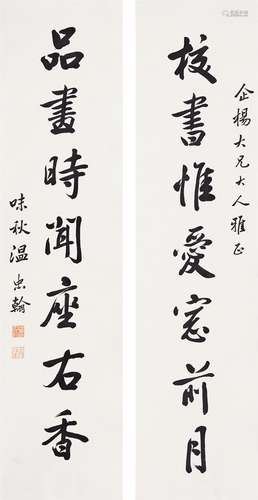 企楊大兄大人雅正
校書惟愛窓前月
品畫時聞座右香
味秋温忠翰